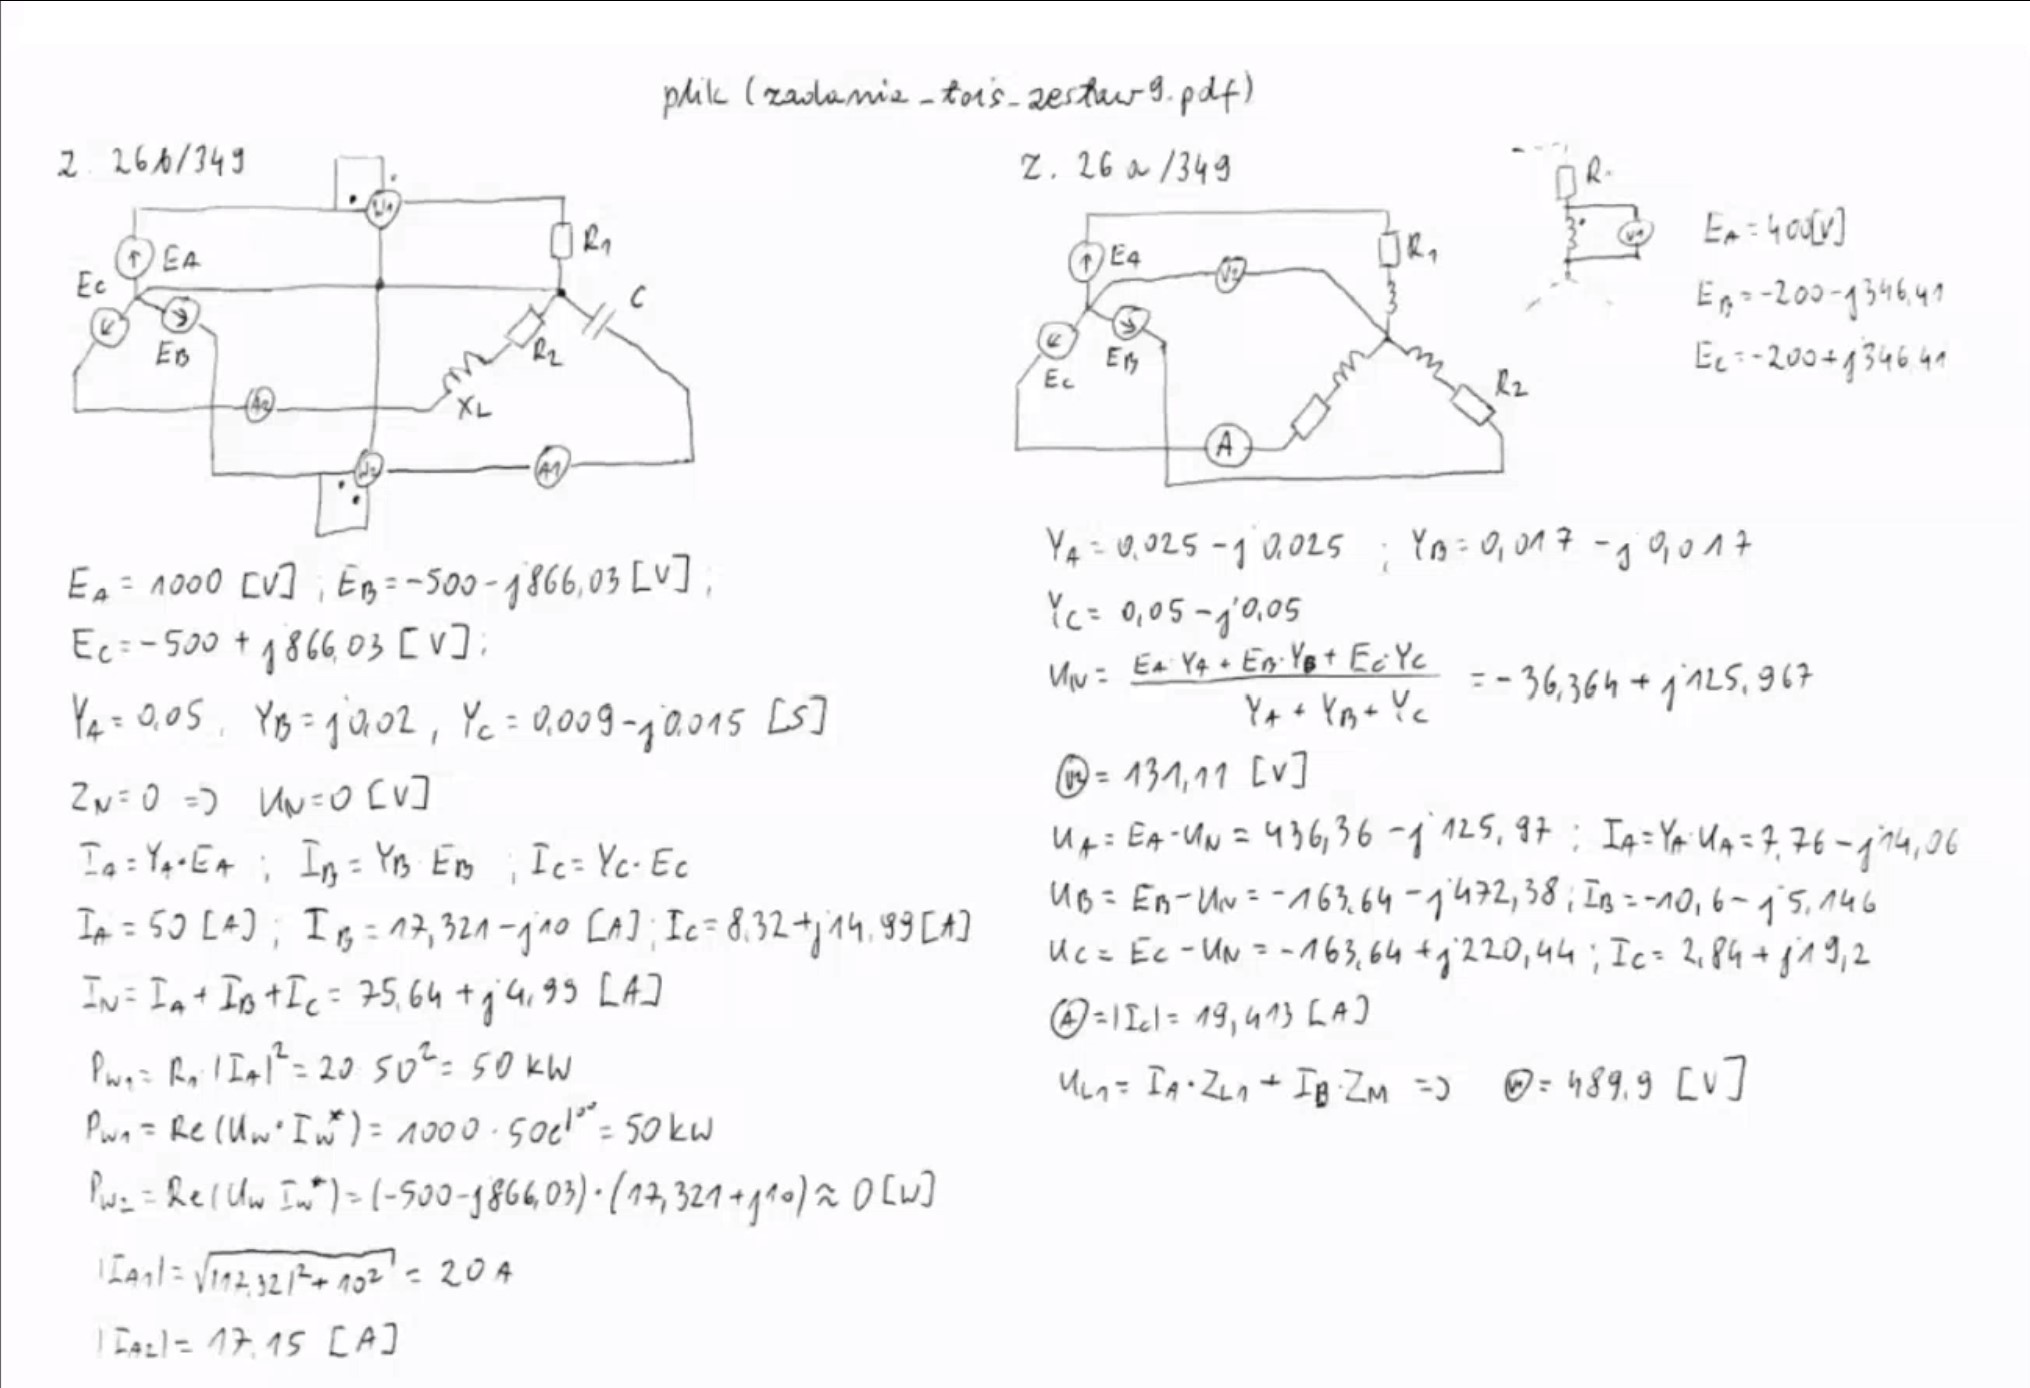 plik (zadania-tois-zestaw9.pdf)
Z. 26b/349
W1
R1
EA
EC
EB
C
R2
XL
A2
W2
A1
EA = 1000 [V] ; EB = -500 - j866,03 [V] ;
EC = -500 + j866,03 [V] ;
YA = 0,05 , YB = j0,02 , YC = 0,009 - j0,015 [S]
ZN = 0 => UN = 0 [V]
IA = YA·EA ; IB = YB·EB ; IC = YC·EC
IA = 50 [A] ; IB = 17,321 - j10 [A] ; IC = 8,32 + j14,99 [A]
IN = IA + IB + IC = 75,64 + j4,99 [A]
PW1 = R1·|IA|² = 20·50² = 50 kW
PW1 = Re(UW·IW*) = 1000·50e^j0° = 50 kW
PW2 = Re(UW IW*) = (-500 - j866,03)·(17,321 + j10) ≈ 0 [W]
|IA1| = √|17,32|² + 10² = 20 A
|IA2| = 17,15 [A]
Z. 26a/349
EA
V2
R1
EC
EB
R2
A
R
V1
EA = 400 [V]
EB = -200 - j346,41
EC = -200 + j346,41
YA = 0,025 - j0,025 ; YB = 0,017 - j0,017
YC = 0,05 - j0,05
UN = EA·YA + EB·YB + EC·YC / YA + YB + YC = -36,364 + j125,967
V2 = 131,11 [V]
UA = EA - UN = 436,36 - j125,97 ; IA = YA·UA = 7,76 - j14,06
UB = EB - UN = -163,64 - j472,38 ; IB = -10,6 - j5,146
UC = EC - UN = -163,64 + j220,44 ; IC = 2,84 + j19,2
A = |IC| = 19,413 [A]
UL1 = IA·ZL1 + IB·ZM => V1 = 489,9 [V]